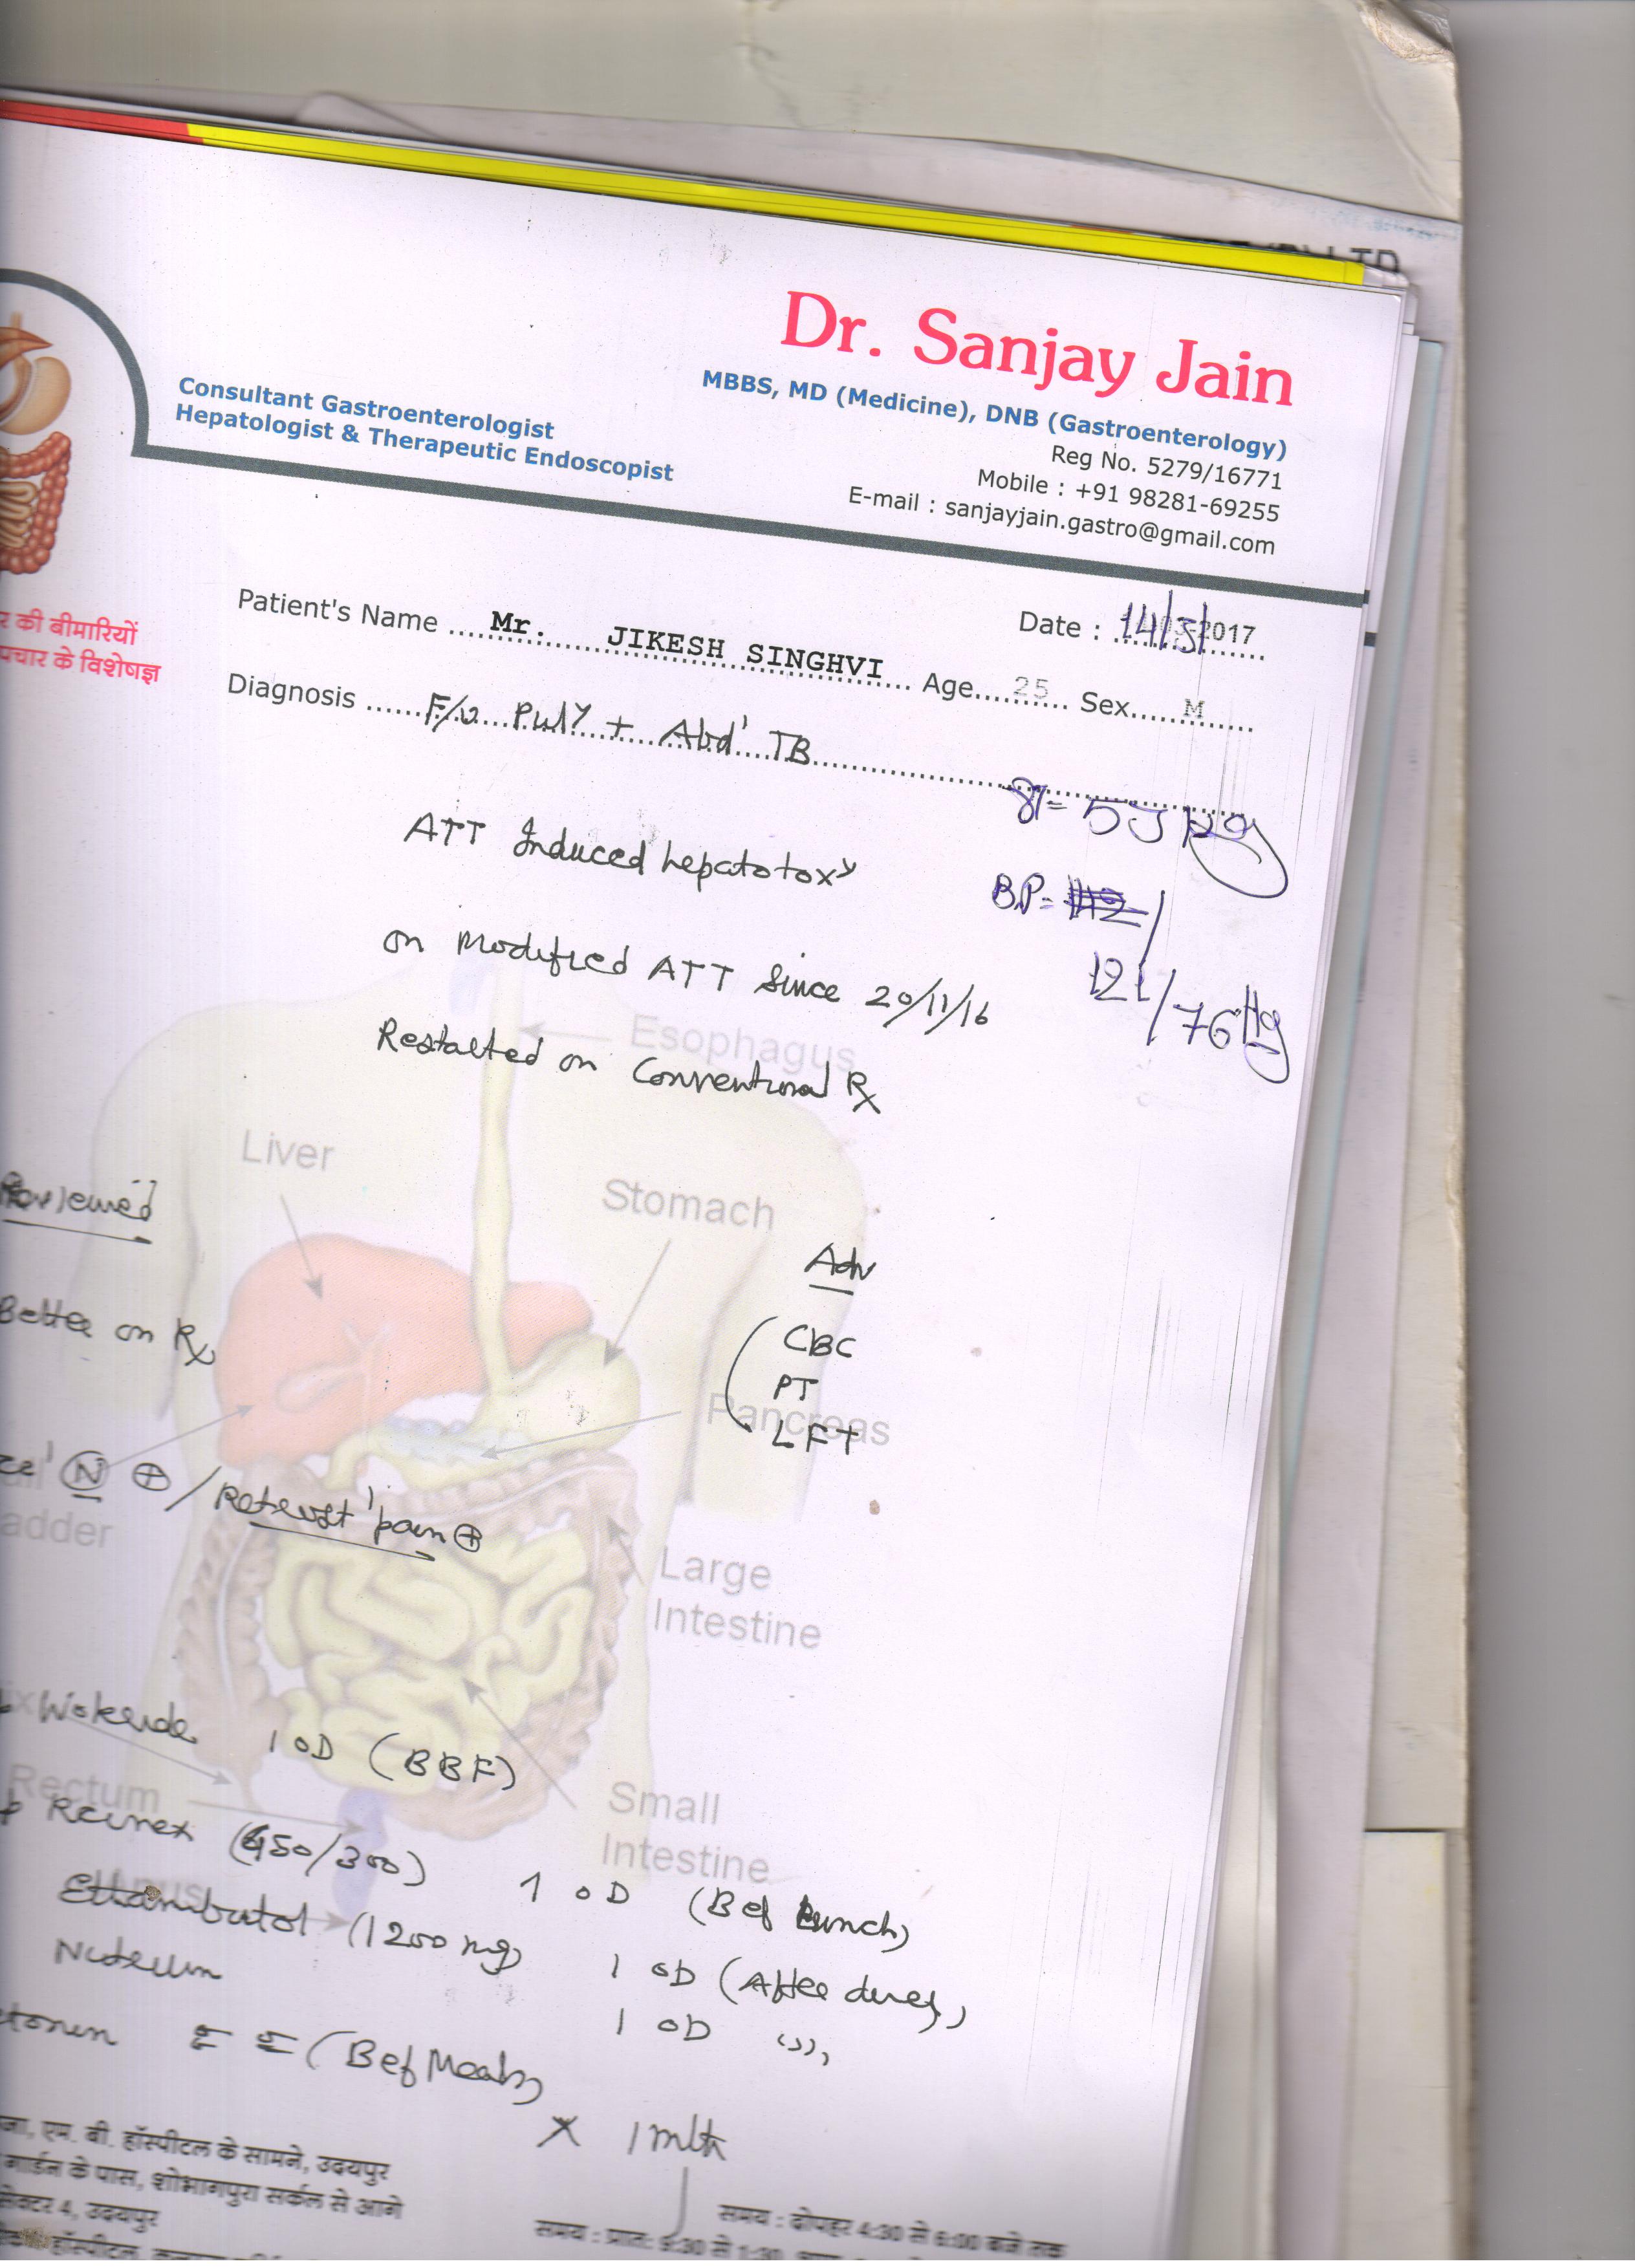 LTD
Dr. Sanjay Jain
MBBS, MD (Medicine), DNB (Gastroenterology)
Reg No. 5279/16771
Mobile : +91 98281-69255
E-mail : sanjayjain.gastro@gmail.com
Consultant Gastroenterologist
Hepatologist & Therapeutic Endoscopist
की बीमारियों
पचार के विशेषज्ञ
Date : 14/3/2017
Patient's Name Mr. JIKESH SINGHVI Age 25 Sex M
Diagnosis F/u Pulʸ + Abd' TB
BP= 121/76 Hg
ATT Induced hepatotoxʸ
on Modified ATT Since 20/11/16
Restarted on Conventional Rx
Esophagus
Liver
Stomach
Reviewed
Adv
Better on Rx
CBC
PT
Pancreas
LFT
N ⊕ / pain ⊕
adder
Large
Intestine
1 OD (BBF)
Rectum
Small
Intestine
(450/300) 1 OD (Bef Lunch)
Ethambutol (1200 mg) 1 OD
1 OD
(Bef Meals)
X 1 mth
एम. बी. हॉस्पीटल के सामने, उदयपुर
गार्डन के पास, शोभागपुरा सर्कल से आगे
सेक्टर 4, उदयपुर
हॉस्पीटल,
समय : प्रातः 9:30 से 1:30
समय : दोपहर 4:30 से 6:00 बजे तक